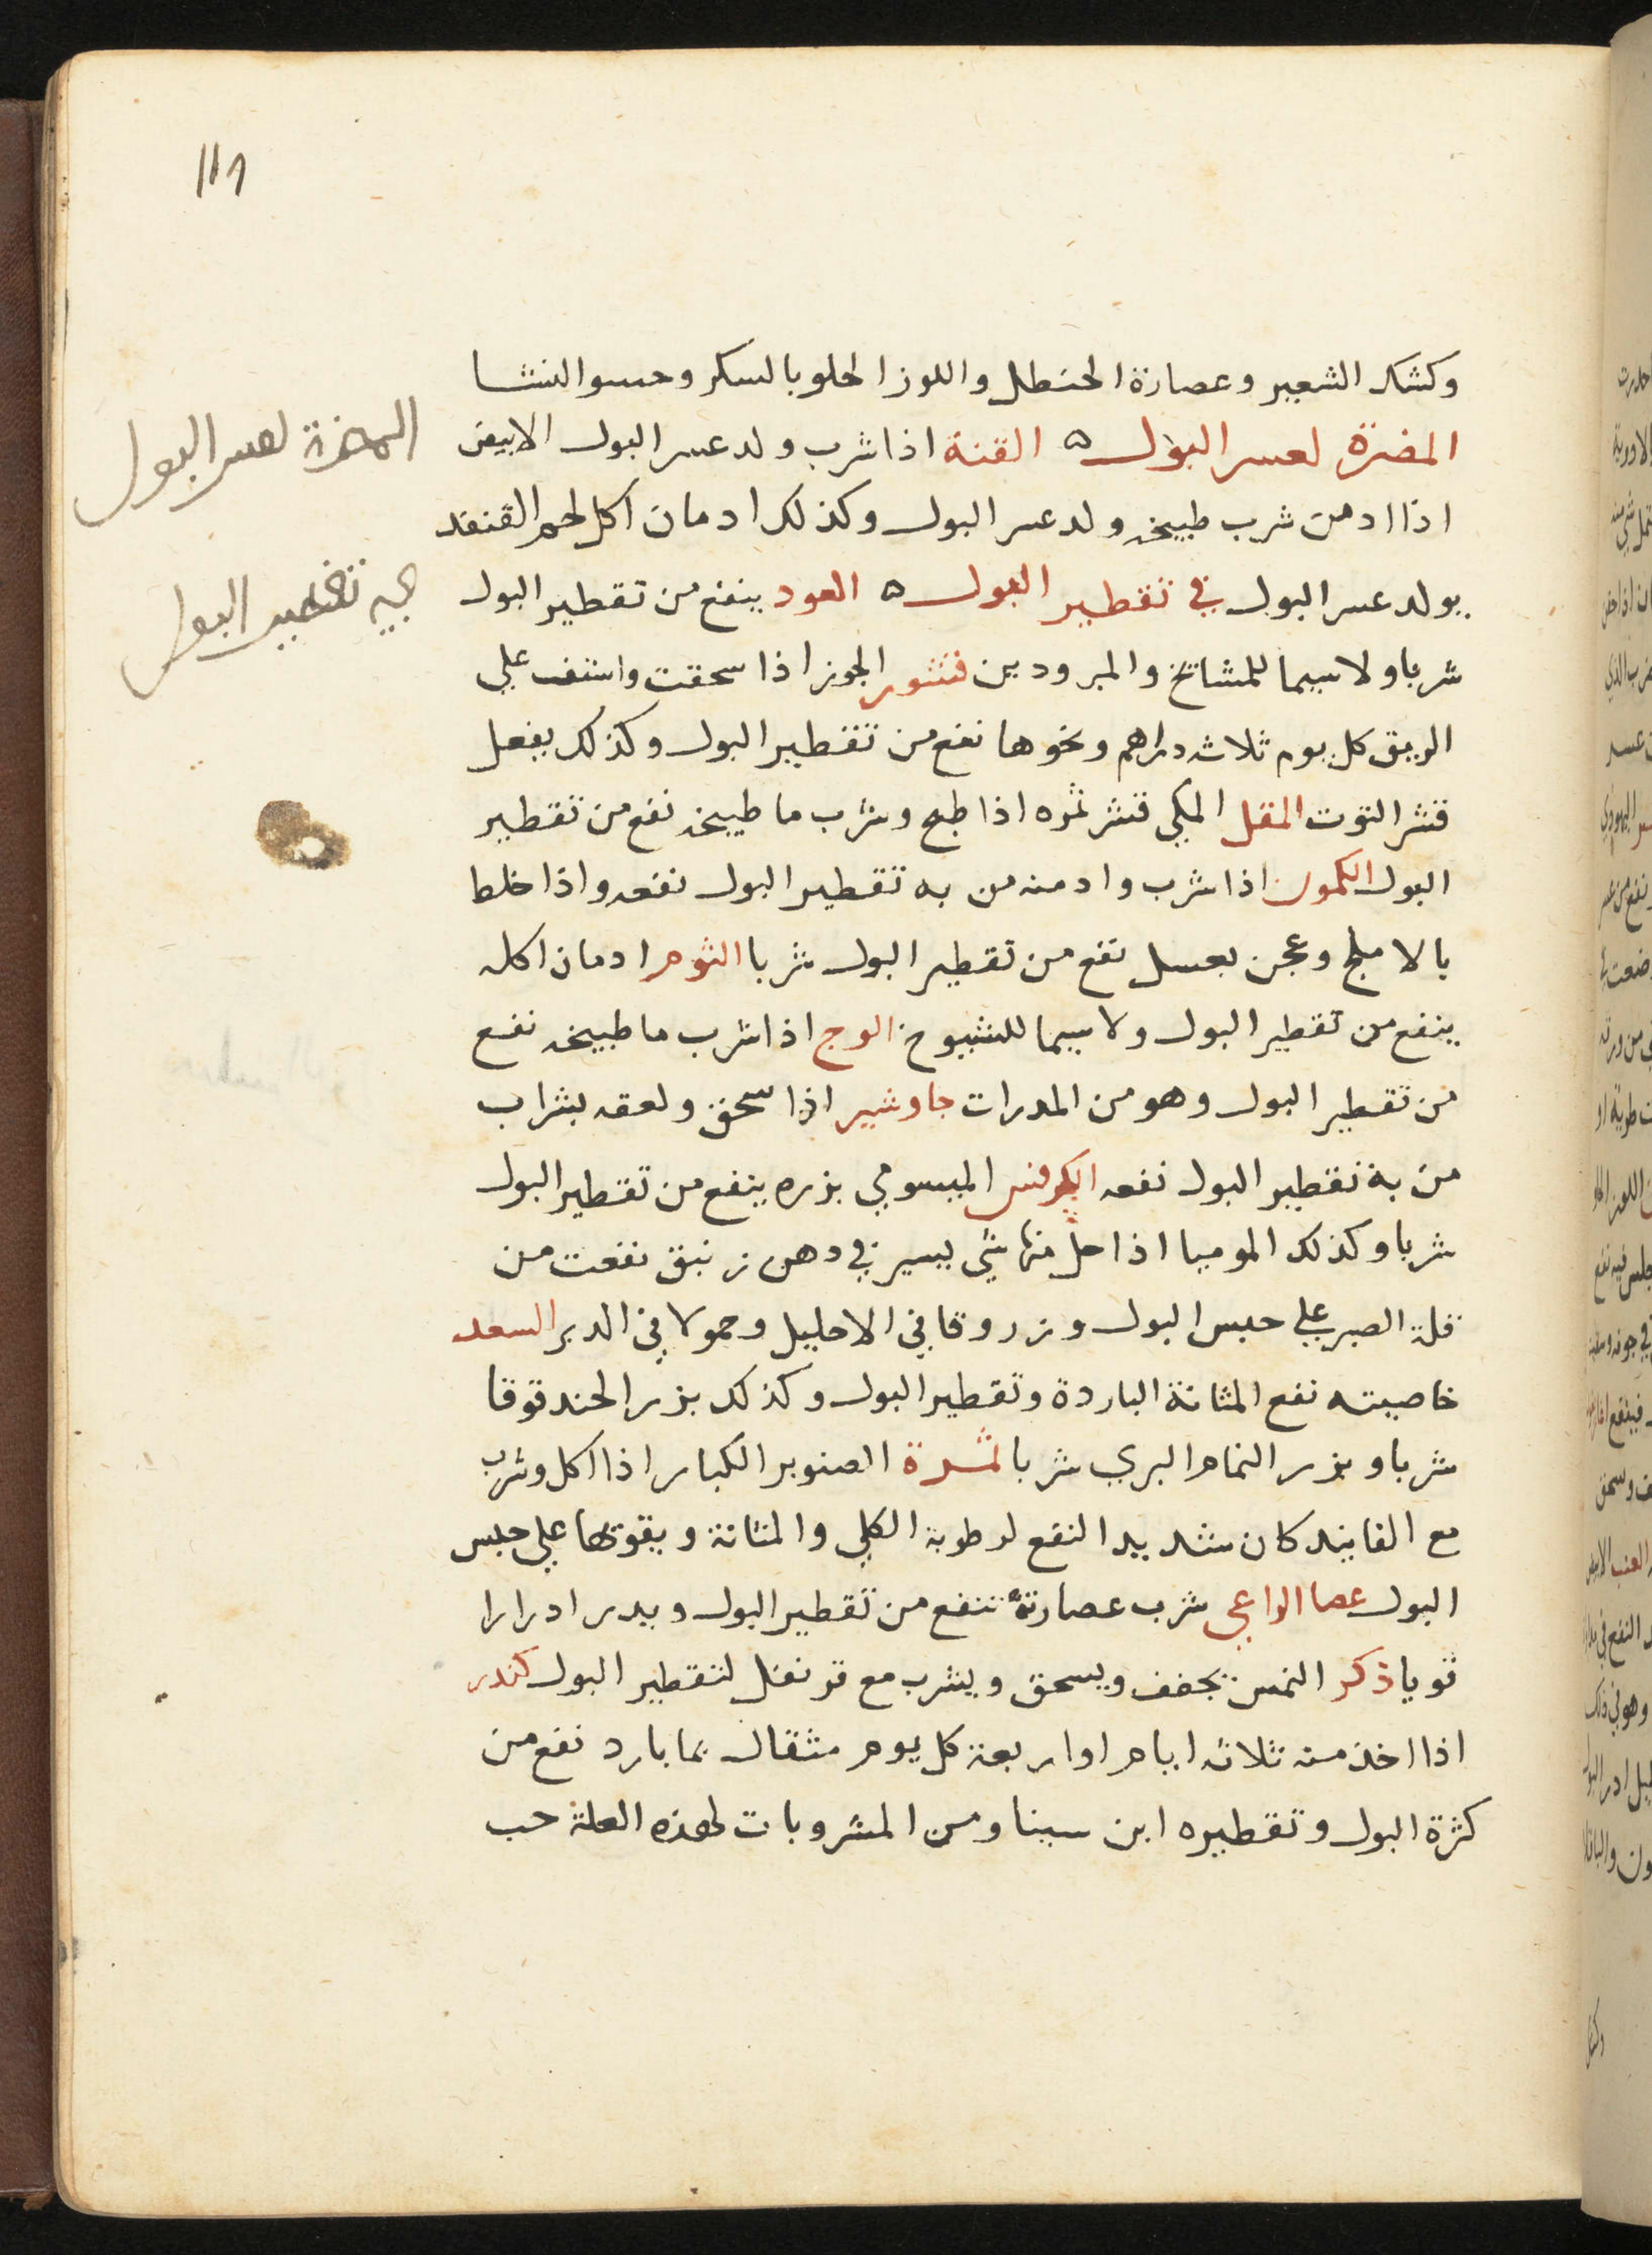 ١١٩
وكشك الشعير وعصارة الحنطل واللوز الحلو بالسكر وحسو النشا
المضرة لعسر البول ه القنة اذا شرب ولد عسر البول الابيض
اذا ادمن شرب طبيخه ولد عسر البول وكذلك ادمان اكل لحم القنفد
يولد عسر البول في تقطير البول ه العود ينفع من تقطير البول
شربا ولا سيما للمشائخ والمبرودين قشور الجوز اذا سحقت واستف علي
الريق كل يوم ثلاث دراهم ونحوها نفع من تقطير البول وكذلك يفعل
قشر التوت المقل المكي قشر ثمره اذا طبخ وشرب ما طبيخه نفع من تقطير
البول الكمون اذا شرب وادمنه من به تقطير البول نفعه واذا خلط
بالاملج وعجن بعسل نفع من تقطير البول شربا الثوم ادمان اكله
ينفع من تقطير البول ولا سيما للشيوخ الوج اذا شرب ما طبيخه نفع
من تقطير البول وهو من المدرات جاوشير اذا سحق ولعقه بشراب
من به تقطير البول نفعه الكرفس بزره ينفع من تقطير البول
شربا وكذلك الموميا اذا حل منها شي يسير في دهن زنبق نفعت من
قلة الصبر علي حبس البول وزروقا في الاحليل وحمولا في الدبر السعد
خاصيته نفع المثانة الباردة وتقطير البول وكذلك بزر الحندقوقا
شربا وبزر النمام البري شربا ثمرة الصنوبر الكبار اذا اكل وشرب
مع الفانيد كان شديد النفع لرطوبة الكلي والمثانة ويقوتها علي حبس
البول عصا الراعي شرب عصارته تنفع من تقطير البول ويدر ادرارا
قويا ذكر النمس يجفف ويسحق ويشرب مع قرنفل لتقطير البول كندر
اذا اخذ منه ثلاثه ايام او اربعة كل يوم مثقال بما بارد نفع من
كثرة البول وتقطيره ابن سينا ومن المشروبات لهذه العلة حب
المضرة لعسر البول
تقطير البول